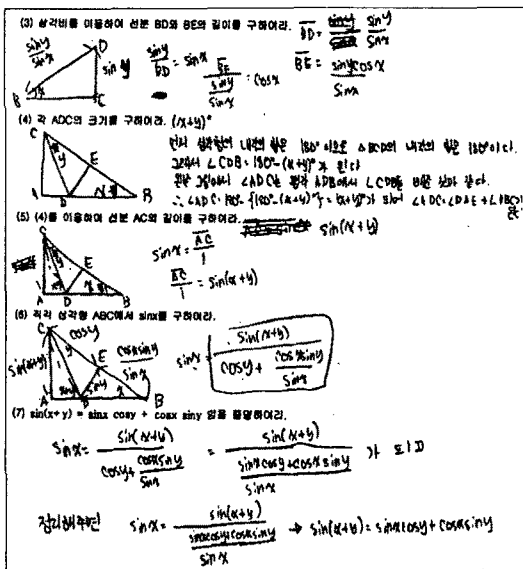 (3) 삼각비를 이용하여 선분 BD와 BE의 길이를 구하여라. BD = siny/sinx
siny/sinx D siny B x E
siny/BD = sinx BE/(siny/sinx) = cosx BE = sinycosx/sinx
(4) 각 ADC의 크기를 구하여라. (x+y)°
C y E A D x B
삼각형의 내각의 합은 180°이므로 △BCD의 내각의 합은 180°이다.
그래서 ∠CDB = 180° - (x+y)°가 된다
∠ADC는 평각 ADB에서 ∠CDB를 같다.
∴ ∠ADC = 180° - {180° - (x+y)°} = (x+y)°가 되어
(5) (4)를 이용하여 선분 AC의 길이를 구하여라. sin(x+y)
C y E A D x B
sinx = AC/1
AC/1 = sin(x+y)
(6) 직각 삼각형 ABC에서 sinx를 구하여라.
C cosy y 1 E cosxsiny/sinx sin(x+y) x+y siny A D x B
sinx = sin(x+y)/(cosy + cosxsiny/sinx)
(7) sin(x+y) = sinx cosy + cosx siny 임을 증명하여라.
sinx = sin(x+y)/(cosy + cosxsiny/sinx) = sin(x+y)/((sinxcosy+cosxsiny)/sinx) 가 되고
정리해주면 sinx = sin(x+y)/((sinxcosy+cosxsiny)/sinx) → sin(x+y) = sinxcosy + cosxsiny